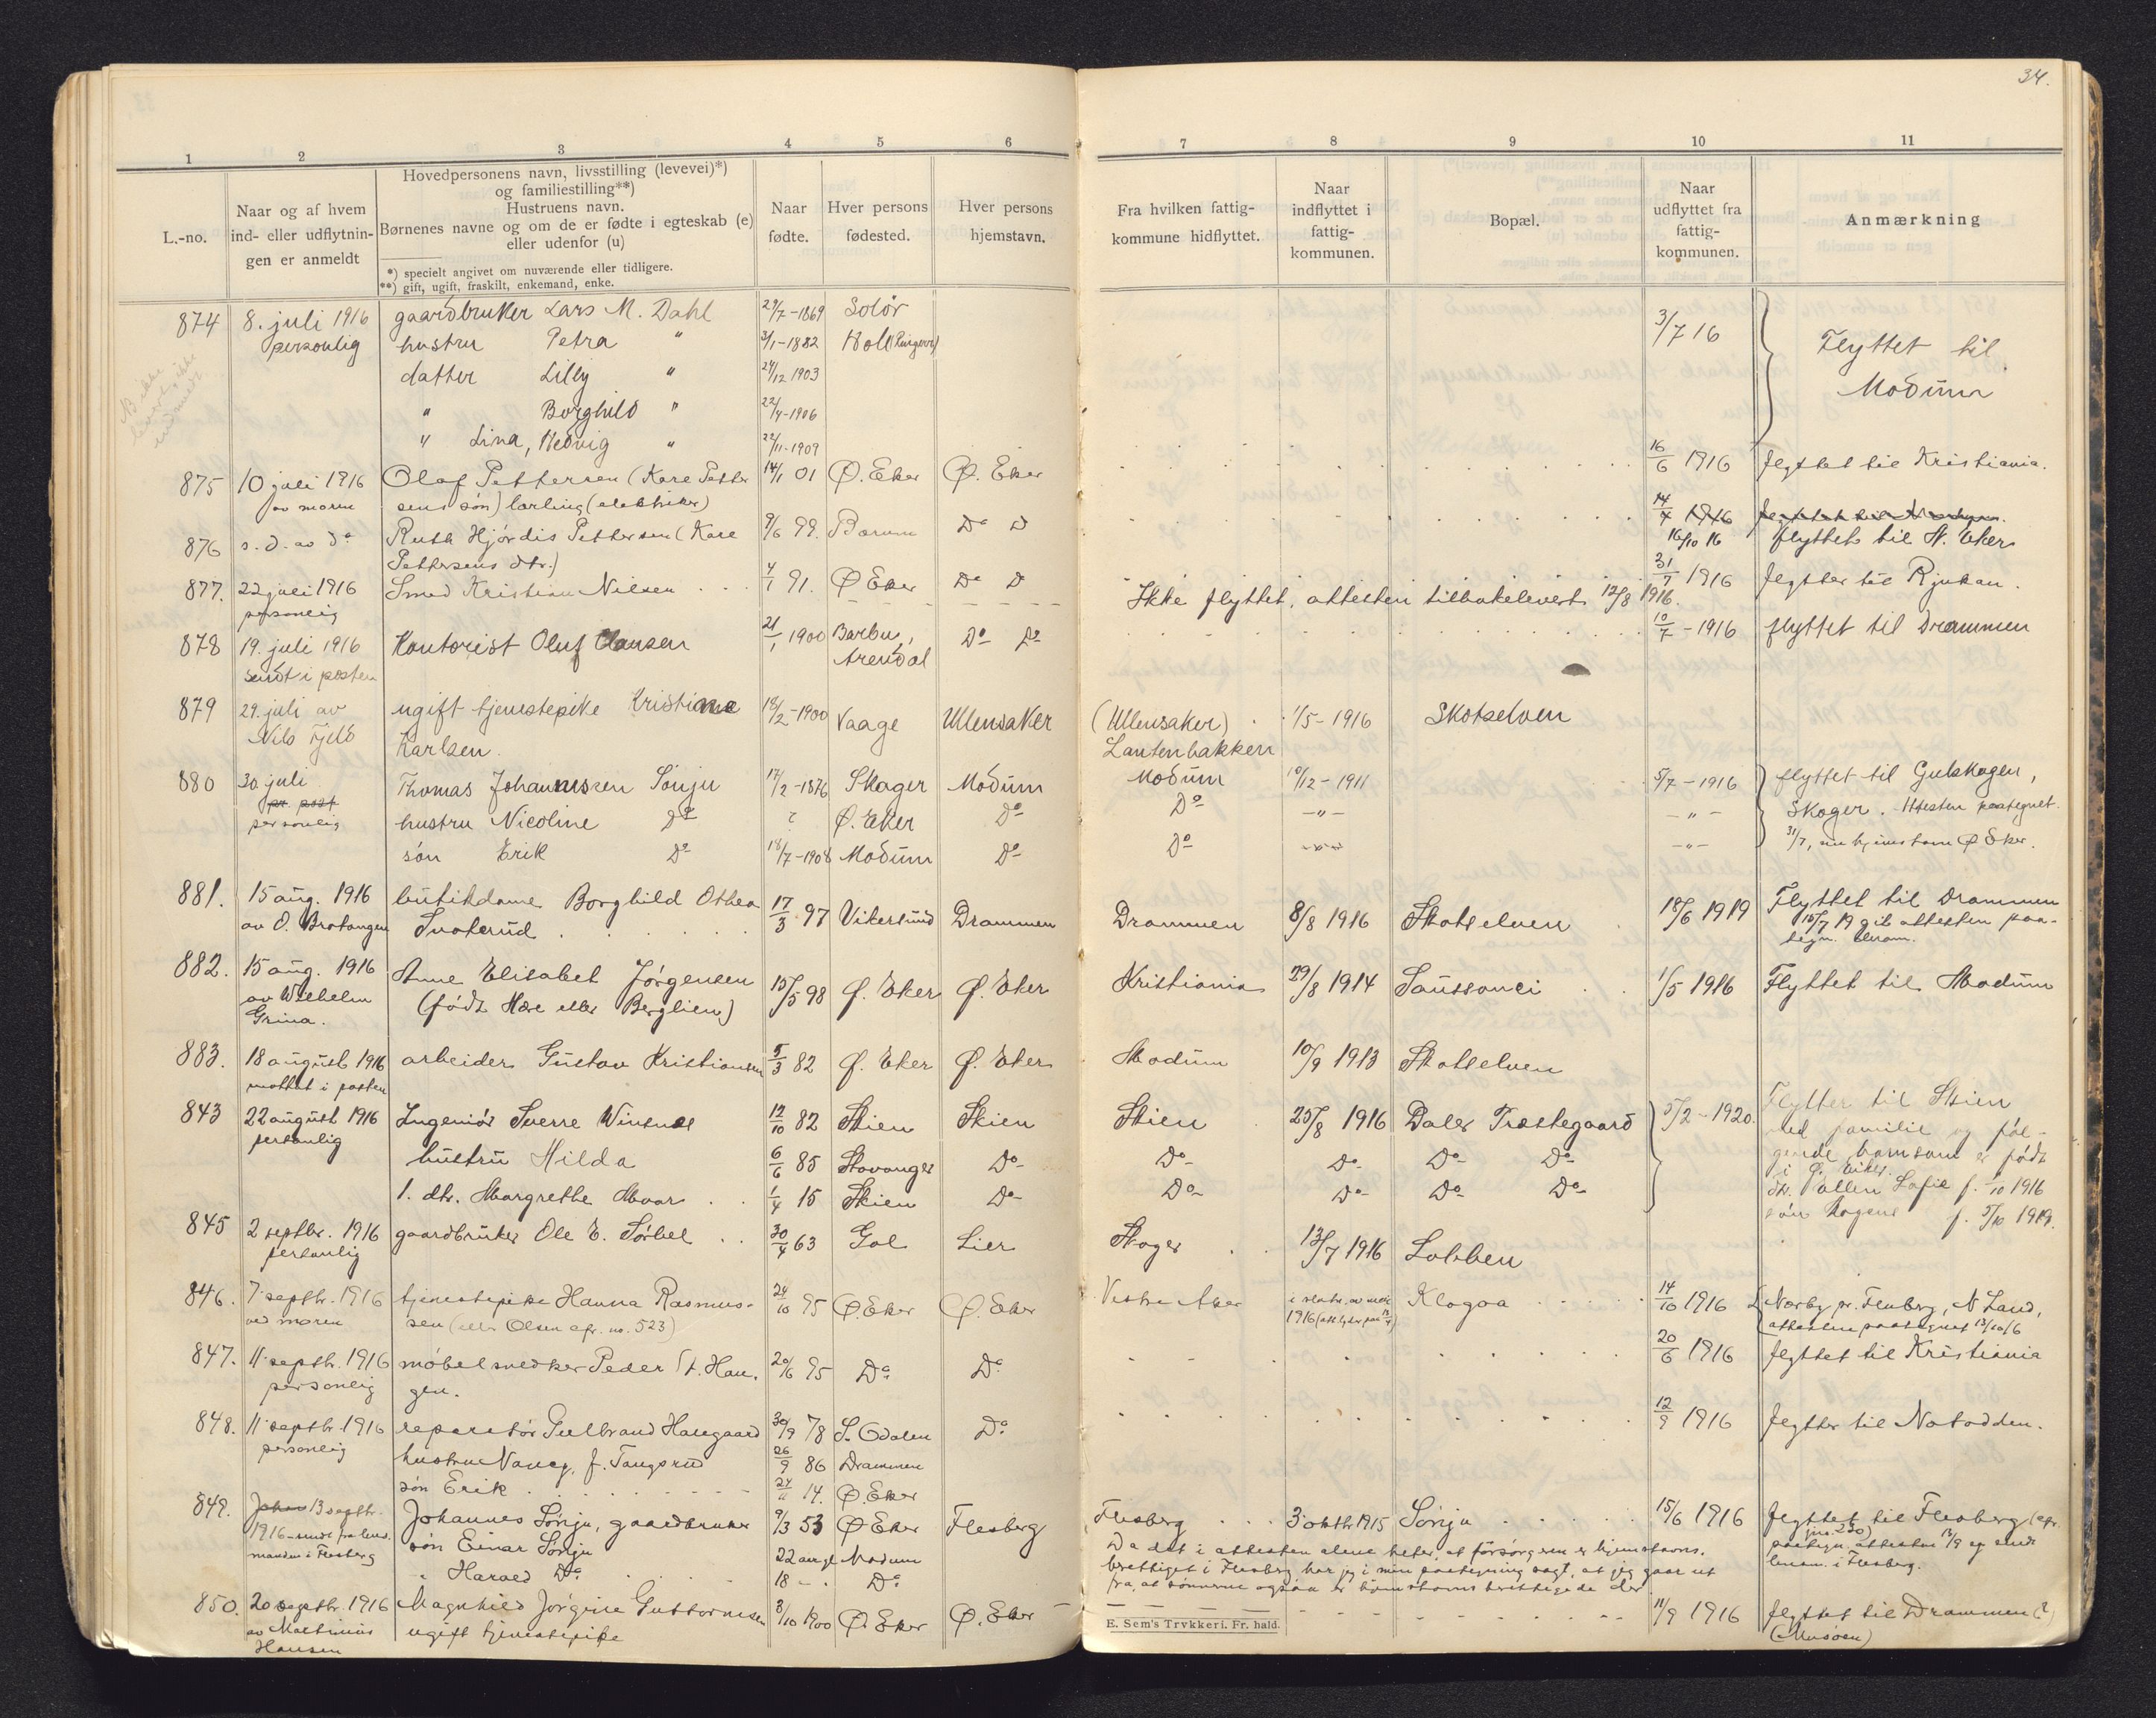 34.
1 2 3 4 5 6 7 8 9 10 11
L.-no.
Naar og af hvem
ind- eller udflytnin-
gen er anmeldt
Hovedpersonens navn, livsstilling (levevei)*)
og familiestilling**)
Hustruens navn.
Børnenes navne og om de er fødte i egteskab (e)
eller udenfor (u)
*) specielt angivet om nuværende eller tidligere.
**) gift, ugift, fraskilt, enkemand, enke.
Naar
fødte.
Hver persons
fødested.
Hver persons
hjemstavn.
Fra hvilken fattig-
kommune hidflyttet.
Naar
indflyttet i
fattig-
kommunen.
Bopæl.
Naar
udflyttet fra
fattig-
kommunen.
Anmærkning
874 8. juli 1916 gaardbruker Lars M. Dahl 29/7-1869 Solør 3/7 16 Flyttet til
personlig hustru Petra " 3/1-1882 Hole (Ringerr) Modum
datter Lilly " 24/12 1903
" Borghild " 22/4-1906
" Lina, Hedvig " 22/11-1909
875 10 juli 1916 Olaf Pettersen (Kare Petter 14/1 01 Ø. Eker Ø. Eker 16/6 1916 flyttet til Kristiania.
av moren sens søn) lærling (elektriker)
876 s. d. av do Ruth Hjørdis Pettersen (Kare 9/6 99. Bærum Do Do 14/7 1916
Pettersens dtr.) 16/10 16 flyttet til N. Eker
877. 22 juli 1916 Smed Kristian Nilsen 4/1 91. Ø Eker Do Do 31/7 1916 flytter til Rjukan.
personlig Ikke flyttet, attesten tilbakelevert 12/8 1916.
878 19. juli 1916 Kontorist Oluf Hansen 21/1 1900 Barbu, Do Do 10/7-1916 flyttet til Drammen
sendt i posten Arendal
879 29. juli av ugift tjenestepike Kristiane 18/2-1900 Vaage Ullensaker (Ullensaker) 1/5-1916 Skotselven
Nils Fjeld Karlsen. Lautenbakken
880 30 juli Thomas Johannssen Sønju 17/2-1876 Skoger Modum Modum 10/12-1911 5/7-1916 flyttet til Gulskogen,
pr. post hustru Nicoline Do ? Ø. Eker Do Do -"- -"- Skoger. Attesten paategnet
personlig søn Erik Do 18/7-1908 Modum Do Do -"- -"- 31/7, nu hjemstavn Ø Eker.
881. 15 aug. 1916 butikdame Borghild Othea 17/3 97 Vikersund Drammen Drammen 8/8 1916 Skotselven 18/6 1919 Flyttet til Drammen
av O. Brotangen Svaterud 15/7 19 git attesten paa-
tegn.
882. 15 aug. 1916 Anne Elisabet Jørgensen 15/5 98 Ø. Eker Ø. Eker Kristiania 29/8 1914 Saussouci 1/5 1916 Flyttet til Modum
av Wilhelm (født Hære eller Berglien)
Grina.
883. 18 august 1916 arbeider Gustav Kristiansen 5/3 82 Ø. Eker Ø. Eker Modum 10/9 1913 Skotselven
mottat i posten
843 22 august 1916 Ingeniør Sverre Winsnes 12/10 82 Skien Skien Skien 25/8 1916 Daler Træstegaard 5/2-1920. Flytter til Skien
personlig hustru Hilda 6/6 85 Stavanger Do Do Do Do Do med familie og føl-
gende barn som er født
1. dtr. Margrethe Moar 1/4 15 Skien Do Do Do Do Do i Ø. Eiker.
dtr. Pallen Sofie f. -10 1916
søn Mogens f. 5/10 1919.
845 2 septbr. 1916 gaardbruker Ole E. Sørbel 30/4 63 Gol Lier Skoger 13/7 1916 Lobben
personlig
846. 7 septbr. 1916 tjenestepike Hanna Rasmus- 24/10 95 Ø. Eker Ø. Eker Vestre Aker Klogoa 14/10 1916 Nærby pr. Fluberg, N Land,
ved moren sen (eller Olsen cfr. no. 523) attesten paategnet 13/10 16
847. 11 septbr. 1916 møbelsnedker Peder St. Hau- 20/6 95 Do Do 20/6 1916 flyttet til Kristiania
personlig gen.
848. 11 septbr 1916 reparatør Gulbrand Haugaard 30/9 78 S. Odalen Do 12/9 1916 flytter til Notodden.
personlig hustru Nancy, f. Tangsrud 26/9 86 Drammen
søn Erik 24/11 14. Ø. Eker
849. 13 septbr. Johannes Sønju, gaardbruker 9/3 53 Ø Eker Flesberg Flesberg 3 oktbr 1915 Sønju 15/6 1916 flyttet til Flesberg (cfr.
1916 - sendt fra lens. søn Einar Sønju 22 aar gl. Modum no. 230)
manden i Flesberg " Harald Do 18 - Do paategn. attesten 13/9 og sendt
lensm. i Flesberg.
Da det i attesten alene heter, at forsørgeren er hjemstavns-
berettiget i Flesberg har jeg i min paategning sagt, at jeg gaar ut
fra, at sønnerne ogsaa er hjemstavns berettigede der
850. 20 septbr. 1916 Magnhild Jørgine Guttormsen 8/10 1900 Ø. Eker Ø. Eker 11/9 1916 flyttet til Drammen (?)
av Mathinius ugift tjenestepike (Musøen)
Hansen
E. Sem's Trykkeri. Fr. hald.